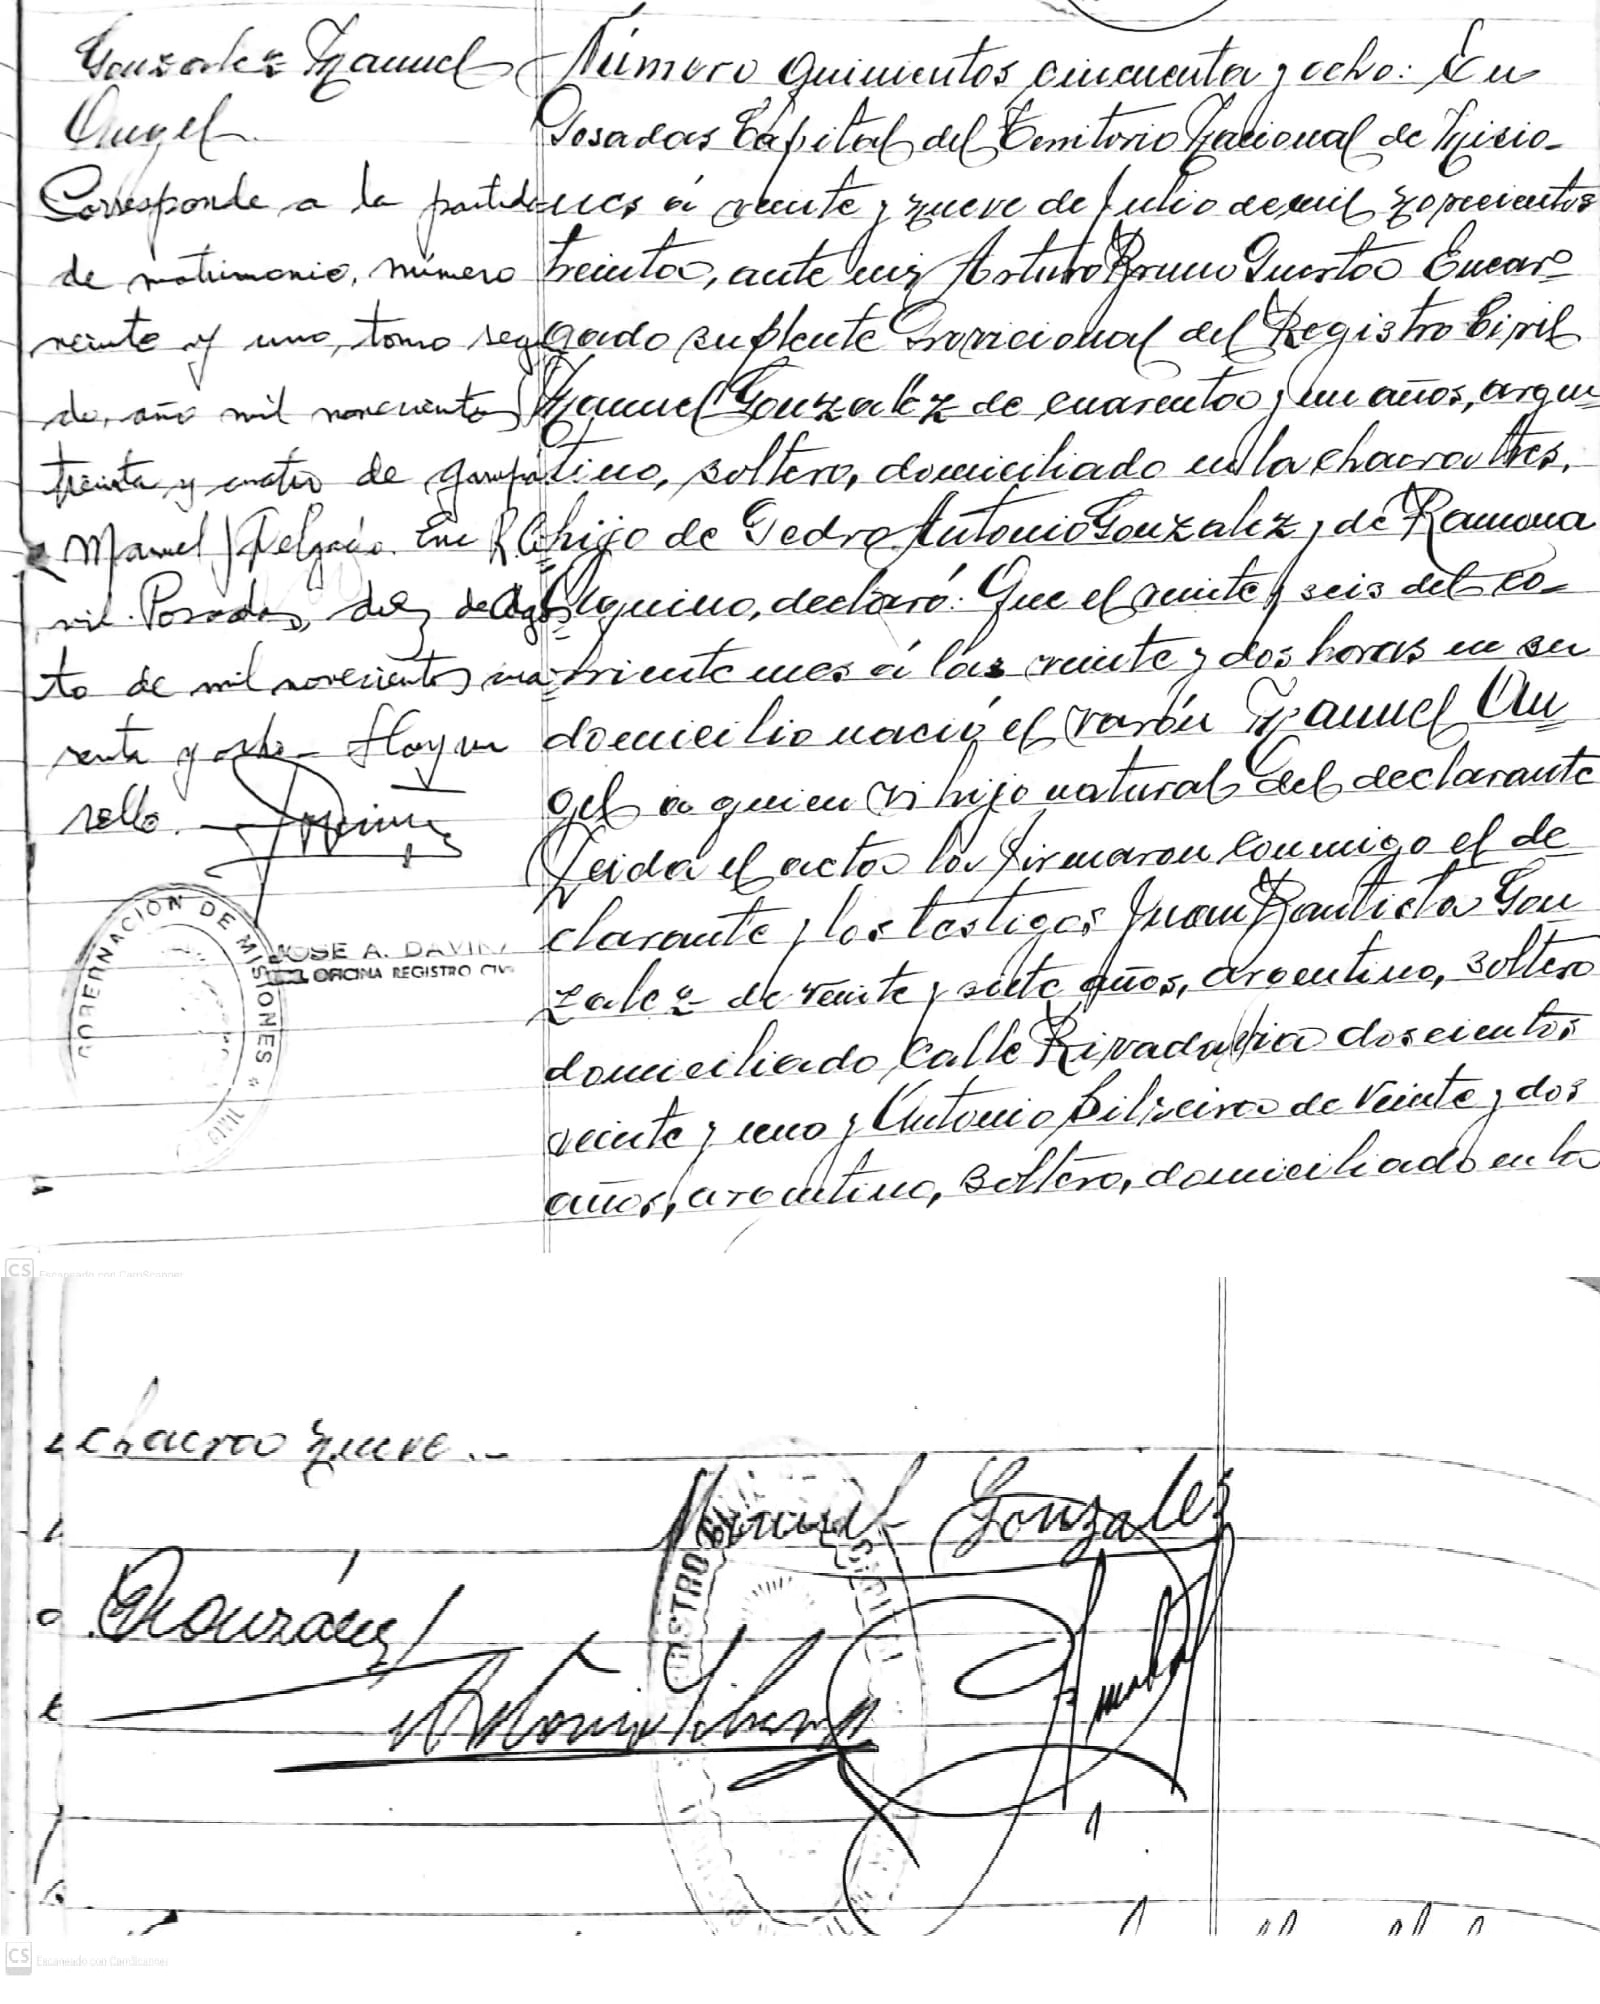 Gonzalez Manuel
Angel
Corresponde a la partida
de matrimonio, número
veinte y uno, tomo segun
do, año mil novecientos
treinta y cuatro de Garupá
Manuel Delgado Enc R. Ci
vil. Posadas, diez de Agos
to de mil novecientos cua
renta y ocho - Hay un
sello.
GOBERNACION DE MISIONES
JOSE A. DAVIÑA
OFICINA REGISTRO CIVIL
Número quinientos cincuenta y ocho: En
Posadas Capital del Territorio Nacional de Misio-
nes á veinte y nueve de Julio de mil novecientos
treinta, ante mi, Arturo Bruno Encar-
gado suplente Provicional del Registro Civil
Manuel Gonzalez de cuarenta y un años, argen-
tino, soltero, domiciliado en la chacra tres,
hijo de Pedro Antonio Gonzalez y de Ramona
Aquino, declaró: Que el veinte y seis del co-
rriente mes á las veinte y dos horas en su
domicilio nació el varón Manuel An
gel a quien vi hijo natural del declarante
Leida el acta la firmaron conmigo el de
clarante y los testigos Juan Bautista Gon
zalez de veinte y siete años, argentino, soltero
domiciliado calle Rivadavia doscientos
veinte y uno y Antonio Silveira de veinte y dos
años, argentino, soltero, domiciliado en la
CS Escaneado con CamScanner
chacra nueve.-
Manuel Gonzalez
Antonio
CS Escaneado con CamScanner